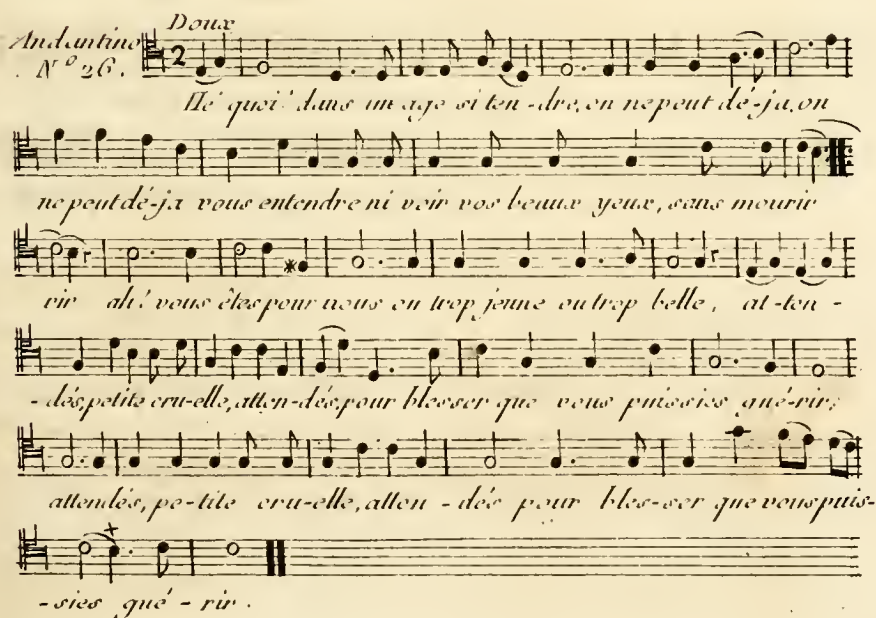 Doux
Andantino
N.º 26.
2
Hé quoi! dans un age si ten-dre, on ne peut dé-ja, on
ne peut dé-ja vous entendre ni voir vos beaux yeux, sans mourir
rir ah! vous êtes pour nous ou trop jeune ou trop belle, at-ten-
-dés, petite cru-elle, atten-dés, pour blesser que vous puissies gué-rir;
attendés, pe-tite cru-elle, atten-dés pour bles-ser que vous puis-
-sies gué-rir.